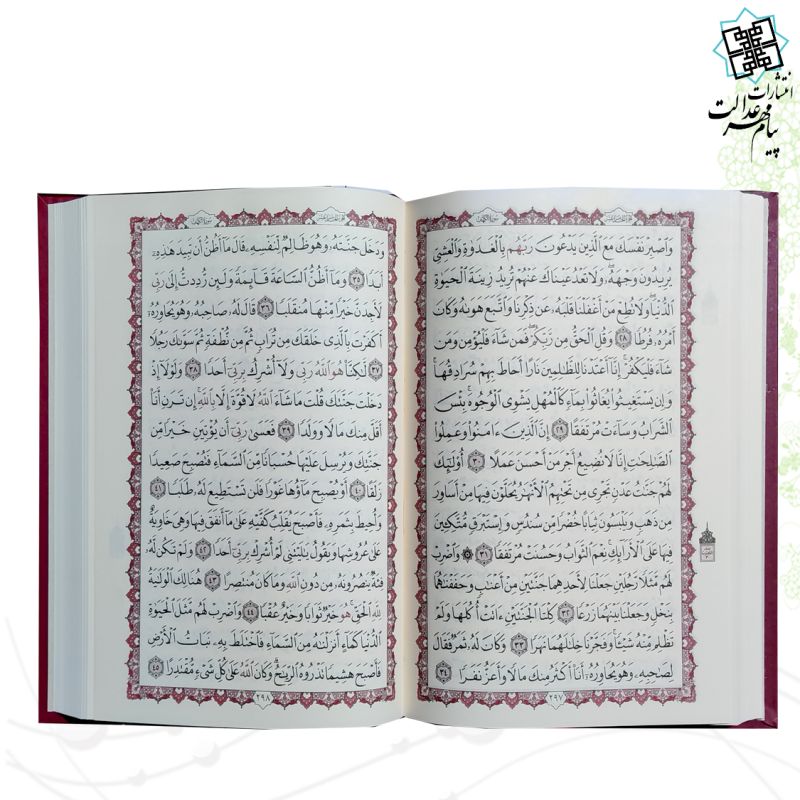 انتشارات
پیام مهر عدالت
الجزء الخامس عشر
سورة الكهف
وَاصْبِرْ نَفْسَكَ مَعَ الَّذِينَ يَدْعُونَ رَبَّهُم بِالْغَدَوٰةِ وَالْعَشِيِّ
يُرِيدُونَ وَجْهَهُۥ وَلَا تَعْدُ عَيْنَاكَ عَنْهُمْ تُرِيدُ زِينَةَ الْحَيَوٰةِ
الدُّنْيَا ۖ وَلَا تُطِعْ مَنْ أَغْفَلْنَا قَلْبَهُۥ عَن ذِكْرِنَا وَاتَّبَعَ هَوَىٰهُ وَكَانَ
أَمْرُهُۥ فُرُطًا ٢٨ وَقُلِ الْحَقُّ مِن رَّبِّكُمْ ۖ فَمَن شَآءَ فَلْيُؤْمِن وَمَن
شَآءَ فَلْيَكْفُرْ ۚ إِنَّآ أَعْتَدْنَا لِلظَّٰلِمِينَ نَارًا أَحَاطَ بِهِمْ سُرَادِقُهَا ۚ
وَإِن يَسْتَغِيثُوا يُغَاثُوا بِمَآءٍ كَالْمُهْلِ يَشْوِى الْوُجُوهَ ۚ بِئْسَ
الشَّرَابُ وَسَآءَتْ مُرْتَفَقًا ٢٩ إِنَّ الَّذِينَ ءَامَنُوا وَعَمِلُوا
الصَّٰلِحَٰتِ إِنَّا لَا نُضِيعُ أَجْرَ مَنْ أَحْسَنَ عَمَلًا ٣٠ أُولَٰٓئِكَ
لَهُمْ جَنَّٰتُ عَدْنٍ تَجْرِى مِن تَحْتِهِمُ الْأَنْهَٰرُ يُحَلَّوْنَ فِيهَا مِنْ أَسَاوِرَ
مِن ذَهَبٍ وَيَلْبَسُونَ ثِيَابًا خُضْرًا مِّن سُندُسٍ وَإِسْتَبْرَقٍ مُّتَّكِـِٔينَ
فِيهَا عَلَى الْأَرَآئِكِ ۚ نِعْمَ الثَّوَابُ وَحَسُنَتْ مُرْتَفَقًا ٣١ ۞ وَاضْرِبْ
لَهُم مَّثَلًا رَّجُلَيْنِ جَعَلْنَا لِأَحَدِهِمَا جَنَّتَيْنِ مِنْ أَعْنَٰبٍ وَحَفَفْنَٰهُمَا
بِنَخْلٍ وَجَعَلْنَا بَيْنَهُمَا زَرْعًا ٣٢ كِلْتَا الْجَنَّتَيْنِ ءَاتَتْ أُكُلَهَا وَلَمْ
تَظْلِم مِّنْهُ شَيْـًٔا ۚ وَفَجَّرْنَا خِلَٰلَهُمَا نَهَرًا ٣٣ وَكَانَ لَهُۥ ثَمَرٌ فَقَالَ
لِصَٰحِبِهِۦ وَهُوَ يُحَاوِرُهُۥٓ أَنَا۠ أَكْثَرُ مِنكَ مَالًا وَأَعَزُّ نَفَرًا ٣٤
٢٩٧
الجزء الخامس عشر
سورة الكهف
وَدَخَلَ جَنَّتَهُۥ وَهُوَ ظَالِمٌ لِّنَفْسِهِۦ قَالَ مَآ أَظُنُّ أَن تَبِيدَ هَٰذِهِۦٓ
أَبَدًا ٣٥ وَمَآ أَظُنُّ السَّاعَةَ قَآئِمَةً وَلَئِن رُّدِدتُّ إِلَىٰ رَبِّى
لَأَجِدَنَّ خَيْرًا مِّنْهَا مُنقَلَبًا ٣٦ قَالَ لَهُۥ صَاحِبُهُۥ وَهُوَ يُحَاوِرُهُۥٓ
أَكَفَرْتَ بِالَّذِى خَلَقَكَ مِن تُرَابٍ ثُمَّ مِن نُّطْفَةٍ ثُمَّ سَوَّىٰكَ رَجُلًا
٣٧ لَّٰكِنَّا۠ هُوَ اللَّهُ رَبِّى وَلَآ أُشْرِكُ بِرَبِّىٓ أَحَدًا ٣٨ وَلَوْلَآ إِذْ
دَخَلْتَ جَنَّتَكَ قُلْتَ مَا شَآءَ اللَّهُ لَا قُوَّةَ إِلَّا بِاللَّهِ ۚ إِن تَرَنِ أَنَا۠
أَقَلَّ مِنكَ مَالًا وَوَلَدًا ٣٩ فَعَسَىٰ رَبِّىٓ أَن يُؤْتِيَنِ خَيْرًا مِّن
جَنَّتِكَ وَيُرْسِلَ عَلَيْهَا حُسْبَانًا مِّنَ السَّمَآءِ فَتُصْبِحَ صَعِيدًا
زَلَقًا ٤٠ أَوْ يُصْبِحَ مَآؤُهَا غَوْرًا فَلَن تَسْتَطِيعَ لَهُۥ طَلَبًا ٤١
وَأُحِيطَ بِثَمَرِهِۦ فَأَصْبَحَ يُقَلِّبُ كَفَّيْهِ عَلَىٰ مَآ أَنفَقَ فِيهَا وَهِىَ خَاوِيَةٌ
عَلَىٰ عُرُوشِهَا وَيَقُولُ يَٰلَيْتَنِى لَمْ أُشْرِكْ بِرَبِّىٓ أَحَدًا ٤٢ وَلَمْ تَكُن لَّهُۥ
فِئَةٌ يَنصُرُونَهُۥ مِن دُونِ اللَّهِ وَمَا كَانَ مُنتَصِرًا ٤٣ هُنَالِكَ الْوَلَٰيَةُ
لِلَّهِ الْحَقِّ ۚ هُوَ خَيْرٌ ثَوَابًا وَخَيْرٌ عُقْبًا ٤٤ وَاضْرِبْ لَهُم مَّثَلَ الْحَيَوٰةِ
الدُّنْيَا كَمَآءٍ أَنزَلْنَٰهُ مِنَ السَّمَآءِ فَاخْتَلَطَ بِهِۦ نَبَاتُ الْأَرْضِ
فَأَصْبَحَ هَشِيمًا تَذْرُوهُ الرِّيَٰحُ ۗ وَكَانَ اللَّهُ عَلَىٰ كُلِّ شَىْءٍ مُّقْتَدِرًا ٤٥
٢٩٨